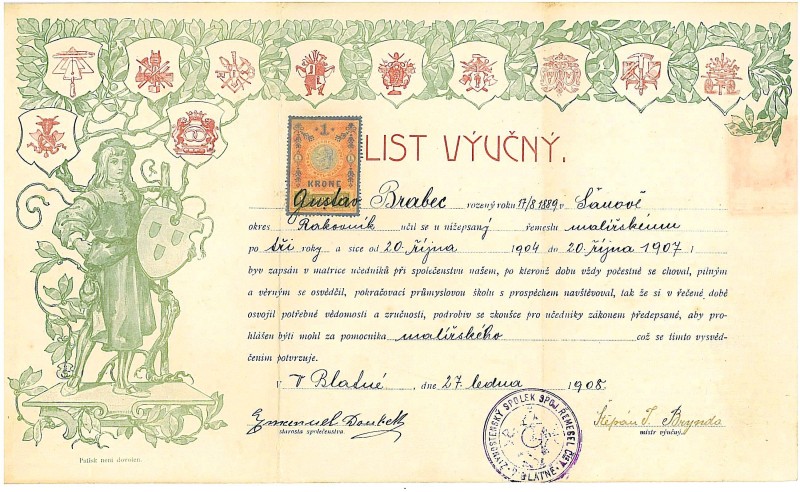 LIST VÝUČNÝ.
1
KRONE
Gustav Brabec rozený roku 17/8 1889 v Šanově
okres Rakovník učil se u nížepsaný řemeslu malířskému
po tři roky a sice od 20. října 1904 do 20. října 1907 i
byv zapsán v matrice učedníků při společenstvu našem, po kterouž dobu vždy počestně se choval, pilným
a věrným se osvědčil, pokračovací průmyslovou školu s prospěchem navštěvoval, tak že si v řečené době
osvojil potřebné vědomosti a zručnosti, podrobiv se zkoušce pro učedníky zákonem předepsané, aby pro-
hlášen býti mohl za pomocníka malířského což se tímto vysvěd-
čením potvrzuje.
v V Blatné, dne 27. ledna 1908.
Emanuel
starosta společenstva.
Štěpán J. Brynda
mistr výučný.
ŽIVNOSTENSKÝ SPOLEK SPOJ. ŘEMESEL V BLATNÉ
Patisk není dovolen.